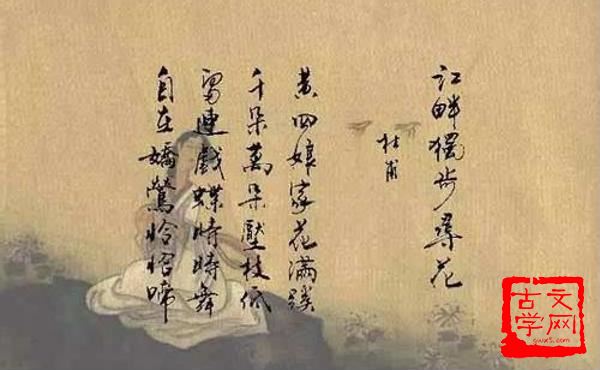 江畔獨步尋花
杜甫
黄四娘家花滿蹊
千朵萬朵壓枝低
留連戲蝶時時舞
自在嬌鶯恰恰啼
古文
学网
gwx5.com